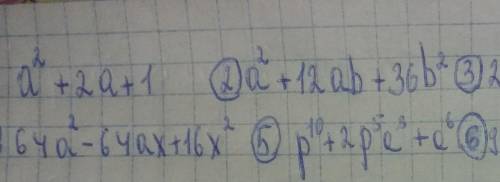 a² + 2a + 1 ② a² + 12ab + 36b² ③ 2
64a² - 64ax + 16x² ⑤ p¹⁰ + 2p⁵c³ + c⁶ ⑥